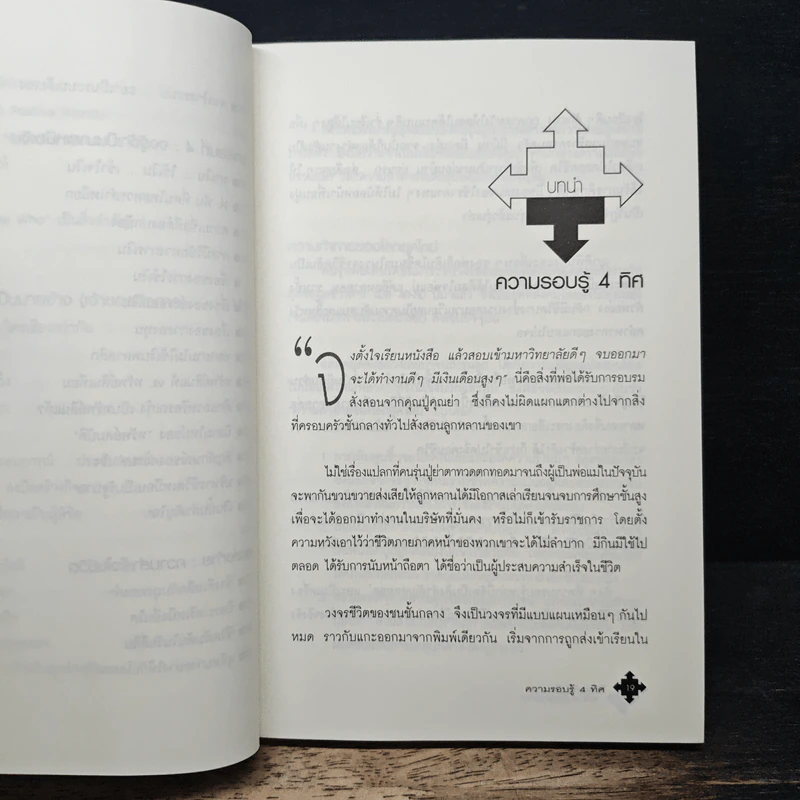 บทนำ
ความรอบรู้ 4 ทิศ
“จงตั้งใจเรียนหนังสือ แล้วสอบเข้ามหาวิทยาลัยดีๆ จบออกมา
จะได้ทำงานดีๆ มีเงินเดือนสูงๆ” นี่คือสิ่งที่พ่อได้รับการอบรม
สั่งสอนจากคุณปู่คุณย่า ซึ่งก็คงไม่ผิดแผกแตกต่างไปจากสิ่ง
ที่ครอบครัวชั้นกลางทั่วไปสั่งสอนลูกหลานของเขา
ไม่ใช่เรื่องแปลกที่คนรุ่นปู่ย่าตาทวดตกทอดมาจนถึงผู้เป็นพ่อแม่ในปัจจุบัน
จะพากันขวนขวายส่งเสียให้ลูกหลานได้มีโอกาสเล่าเรียนจนจบการศึกษาชั้นสูง
เพื่อจะได้ออกมาทำงานในบริษัทที่มั่นคง หรือไม่ก็เข้ารับราชการ โดยตั้ง
ความหวังเอาไว้ว่าชีวิตภายภาคหน้าของพวกเขาจะได้ไม่ลำบาก มีกินมีใช้ไป
ตลอด ได้รับการนับหน้าถือตา ได้ชื่อว่าเป็นผู้ประสบความสำเร็จในชีวิต
วงจรชีวิตของชนชั้นกลาง จึงเป็นวงจรที่มีแบบแผนเหมือนๆ กันไป
หมด ราวกับแกะออกมาจากพิมพ์เดียวกัน เริ่มจากการถูกส่งเข้าเรียนใน
ความรอบรู้ 4 ทิศ 19